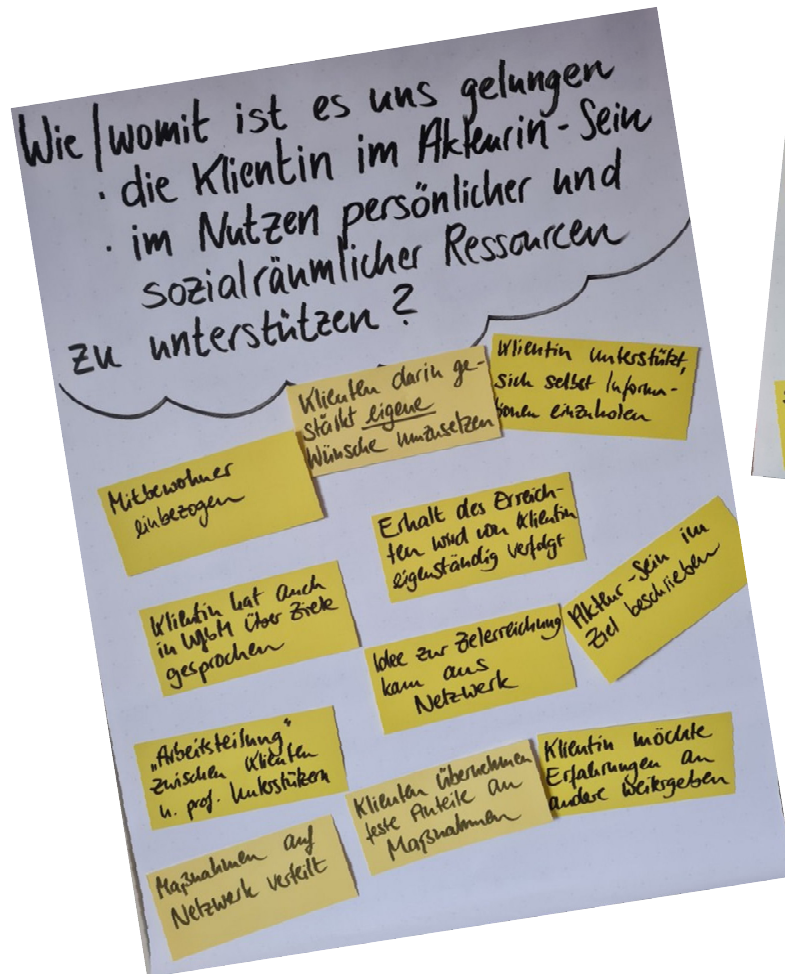 Wie/womit ist es uns gelungen
· die Klientin im Akteurin-Sein
· im Nutzen persönlicher und
sozialräumlicher Ressourcen
zu unterstützen?
Klienten darin ge-
stärkt eigene
Wünsche umzusetzen
Klientin unterstützt,
sich selbst Informa-
tionen einzuholen
Mitbewohner
einbezogen
Erhalt des Erreich-
ten wird von Klientin
eigenständig verfolgt
Akteur-Sein im
Ziel beschrieben
Klientin hat auch
in WfbM über Ziele
gesprochen
Idee zur Zielerreichung
kam aus
Netzwerk
„Arbeitsteilung"
zwischen Klienten
u. prof. Unterstützern
Klienten übernehmen
feste Anteile an
Maßnahmen
Klientin möchte
Erfahrungen an
andere weitergeben
Maßnahmen auf
Netzwerk verteilt